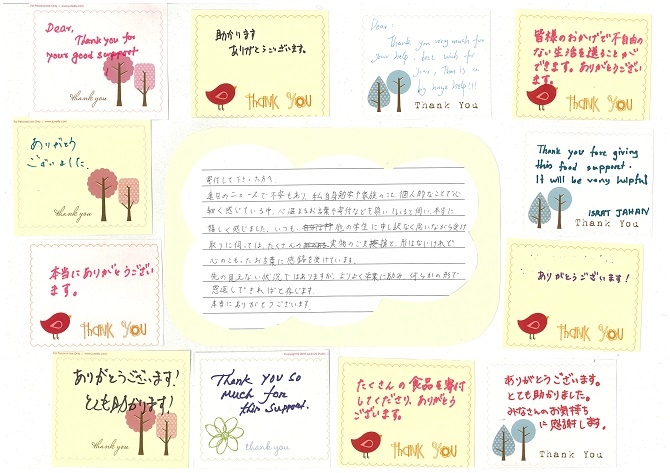 Dear,
Thank you for
your good support
!
thank you
助かります
ありがとうございます。
THANK YOU
Dear,
Thank you very much for
your help.
Thank You
皆様のおかげで不自由の
ない生活を送ることが
できます。ありがとうござい
ます。
THANK YOU
ありがとう
ございました。
thank you
寄付して下さった方へ
連日のニュースで不安もあり、私自身勉学や家族のこと、個人的なことで心
細く感じている中、心温まるお言葉や寄付などを
嬉しく感じました。いつも、他の学生に申し訳なく思いながら受け
取りに伺っては、たくさんの
心のこもったお言葉に感銘を受けています。
先の見えない状況ではありますが、よりよく学業に励み、何らかの形で
恩返しできればと存じます。
本当にありがとうございます。
Thank you fore giving
this food support.
It will be very helpful
ISRAT JAHAN
Thank You
本当にありがとうござい
ます。
THANK YOU
ありがとうございます!
THANK YOU
ありがとうございます!
とても助かります!
thank you
Thank you so
much for
this support.
thank you
たくさんの食品を寄付
してくださり、ありがとう
ございます。
THANK YOU
ありがとうございます。
とても助かりました。
みなさんのお気持ち
に感謝します。
Thank You